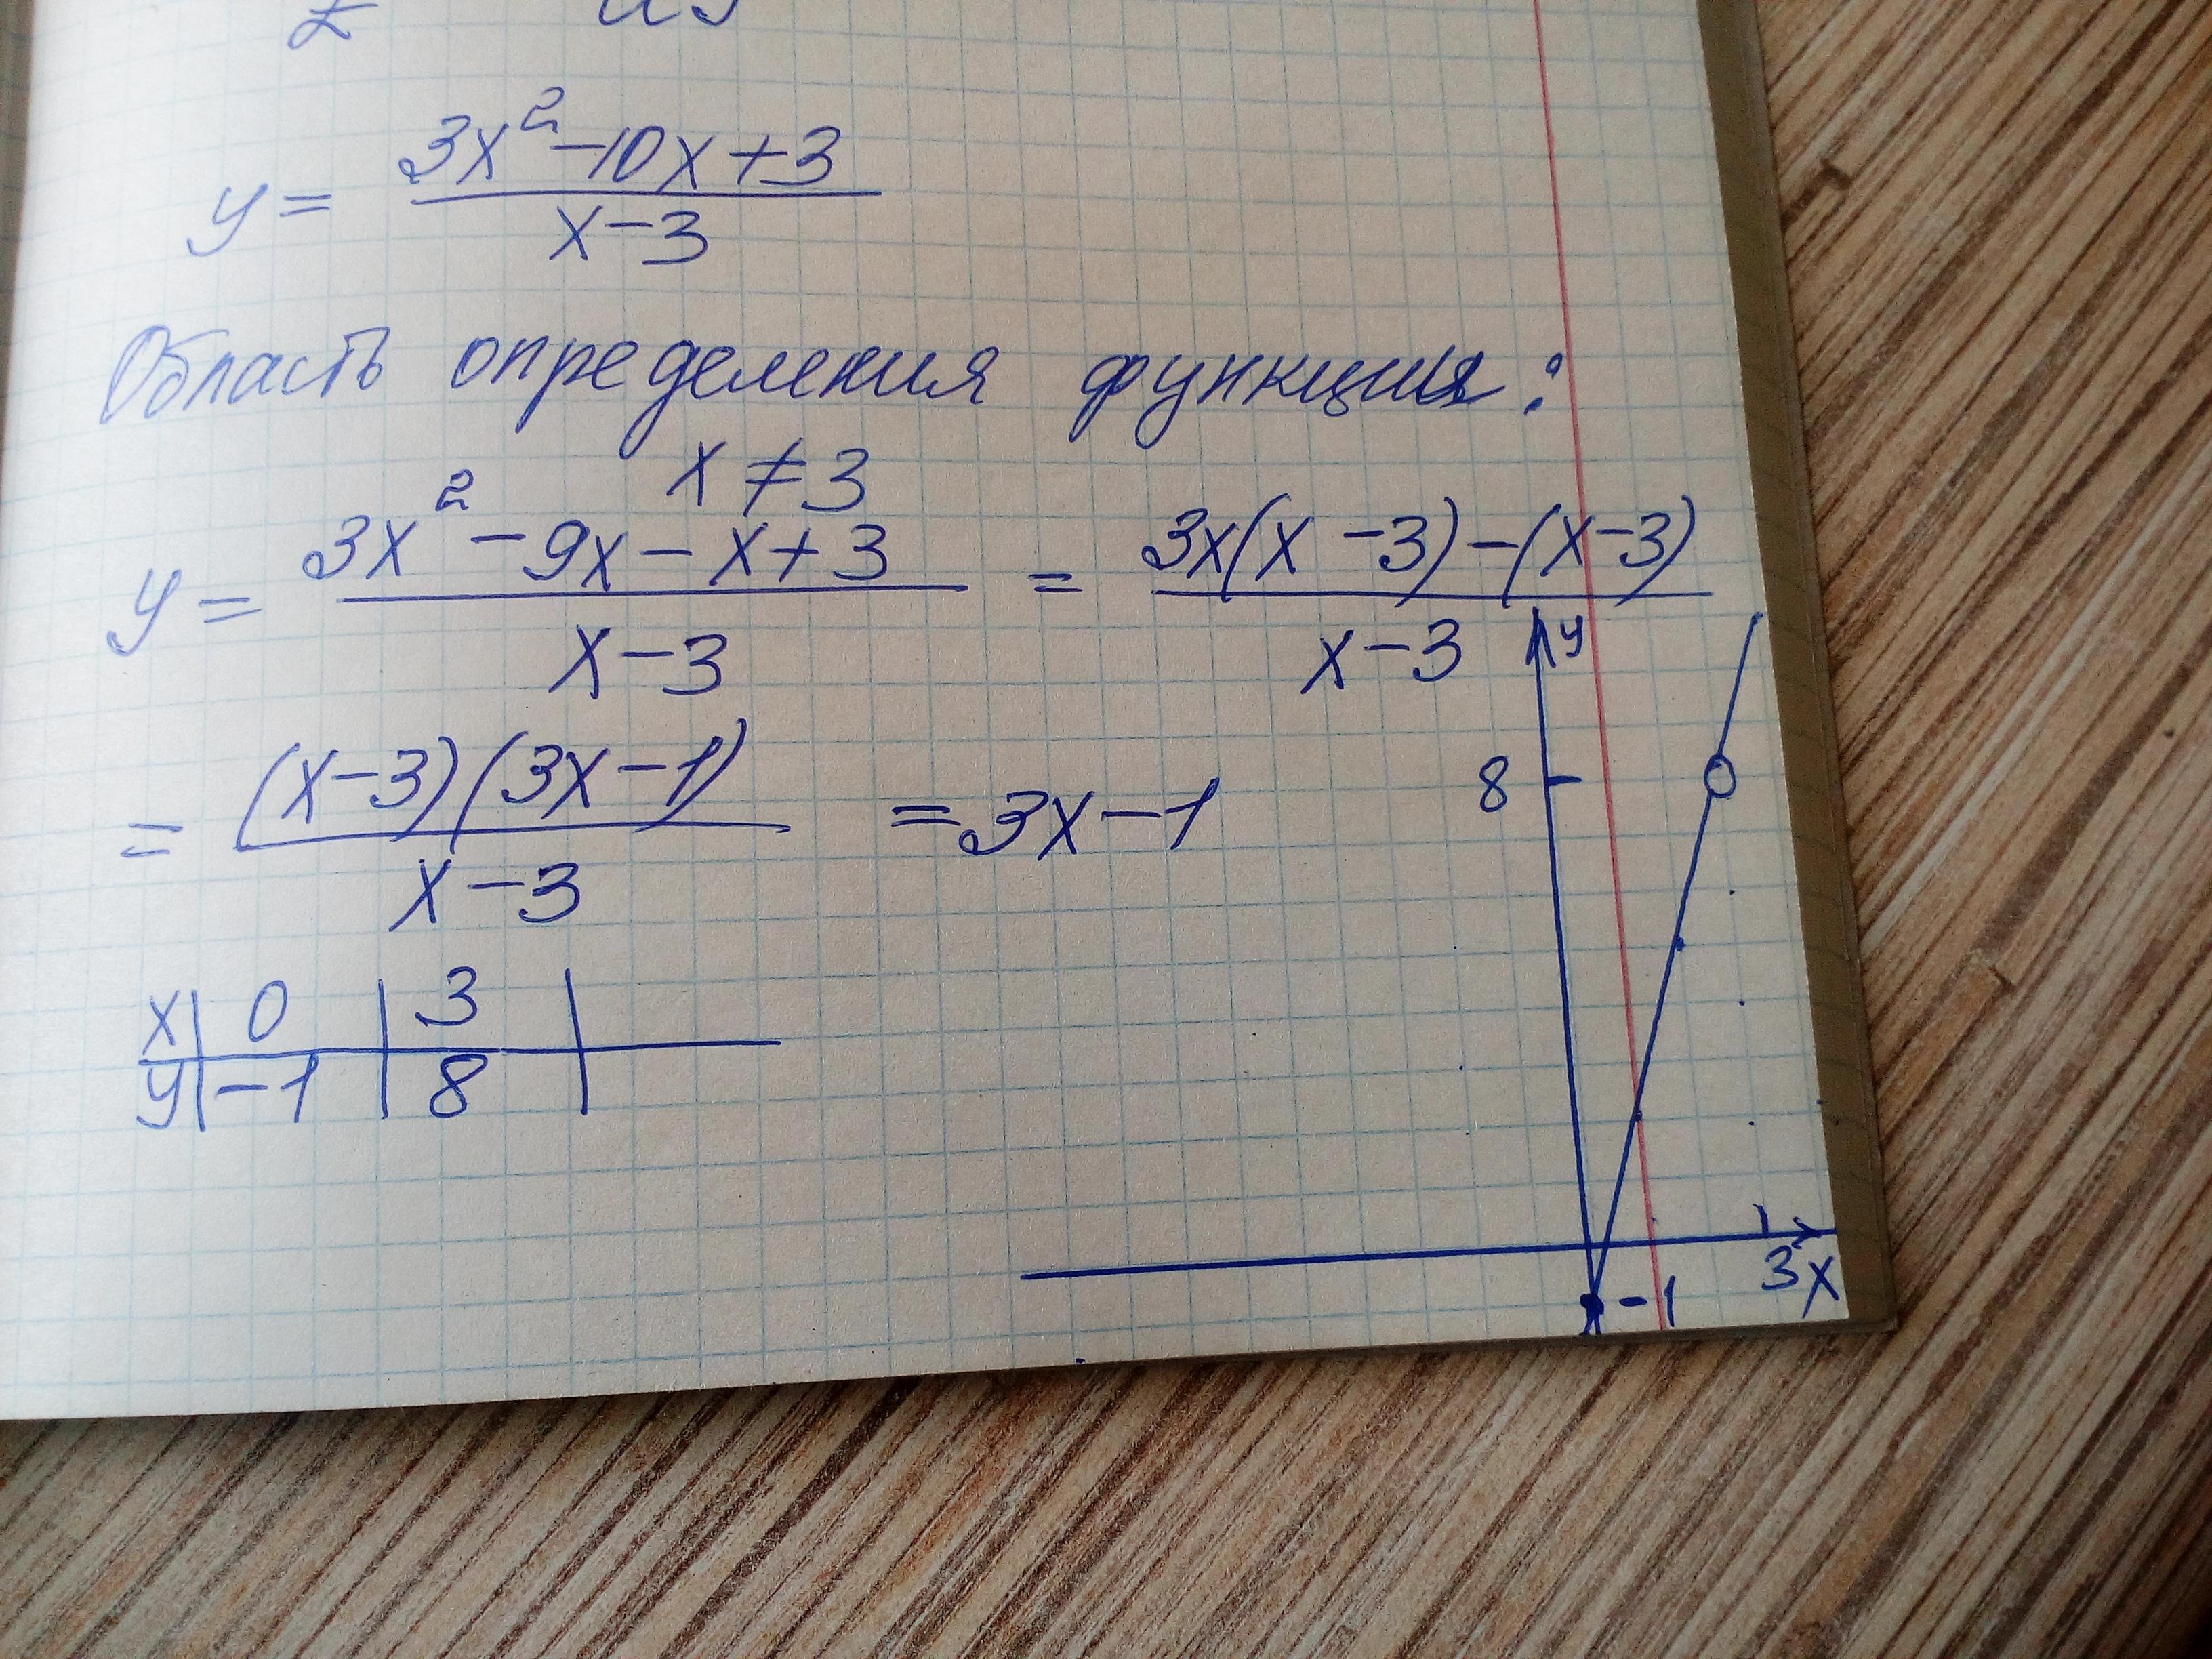 y = (3x² - 10x + 3) / (x - 3)
Область определения функции:
x ≠ 3
y = (3x² - 9x - x + 3) / (x - 3) = (3x(x - 3) - (x - 3)) / (x - 3)
= ((x - 3)(3x - 1)) / (x - 3) = 3x - 1
x | 0 | 3 |
y | -1 | 8 |
y
8
3 x
-1